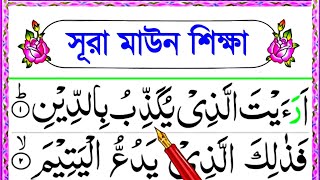 সূরা মাউন শিক্ষা
اَرَءَيْتَ الَّذِىْ يُكَذِّبُ بِالدِّيْنِ ؕ ١
فَذٰلِكَ الَّذِىْ يَدُعُّ الْيَتِيْمَ ۙ ٢